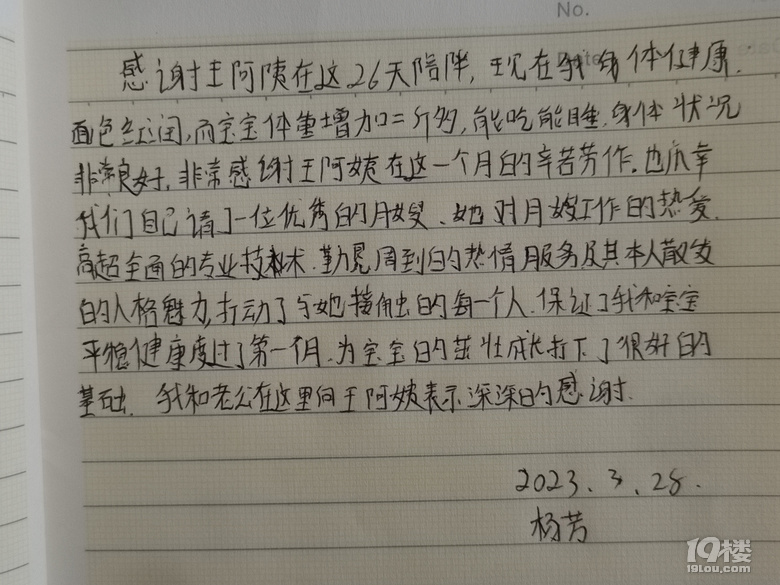 No.
感谢王阿姨在这26天陪伴,现在我身体健康.
面色红润,而宝宝体重增加二斤多,能吃能睡.身体状况
非常良好.非常感谢王阿姨在这一个月的辛苦劳作.也庆幸
我们自己请了一位优秀的月嫂、她对月嫂工作的热爱.
高超全面的专业技术.勤恳周到的热情服务及其本人散发
的人格魅力,打动了与她接触的每一个人.保证了我和宝宝
平稳健康度过了第一个月.为宝宝的茁壮成长打下了很好的
基础.我和老公在这里向王阿姨表示深深的感谢.
2023.3.28.
杨芳
19楼
19lou.com